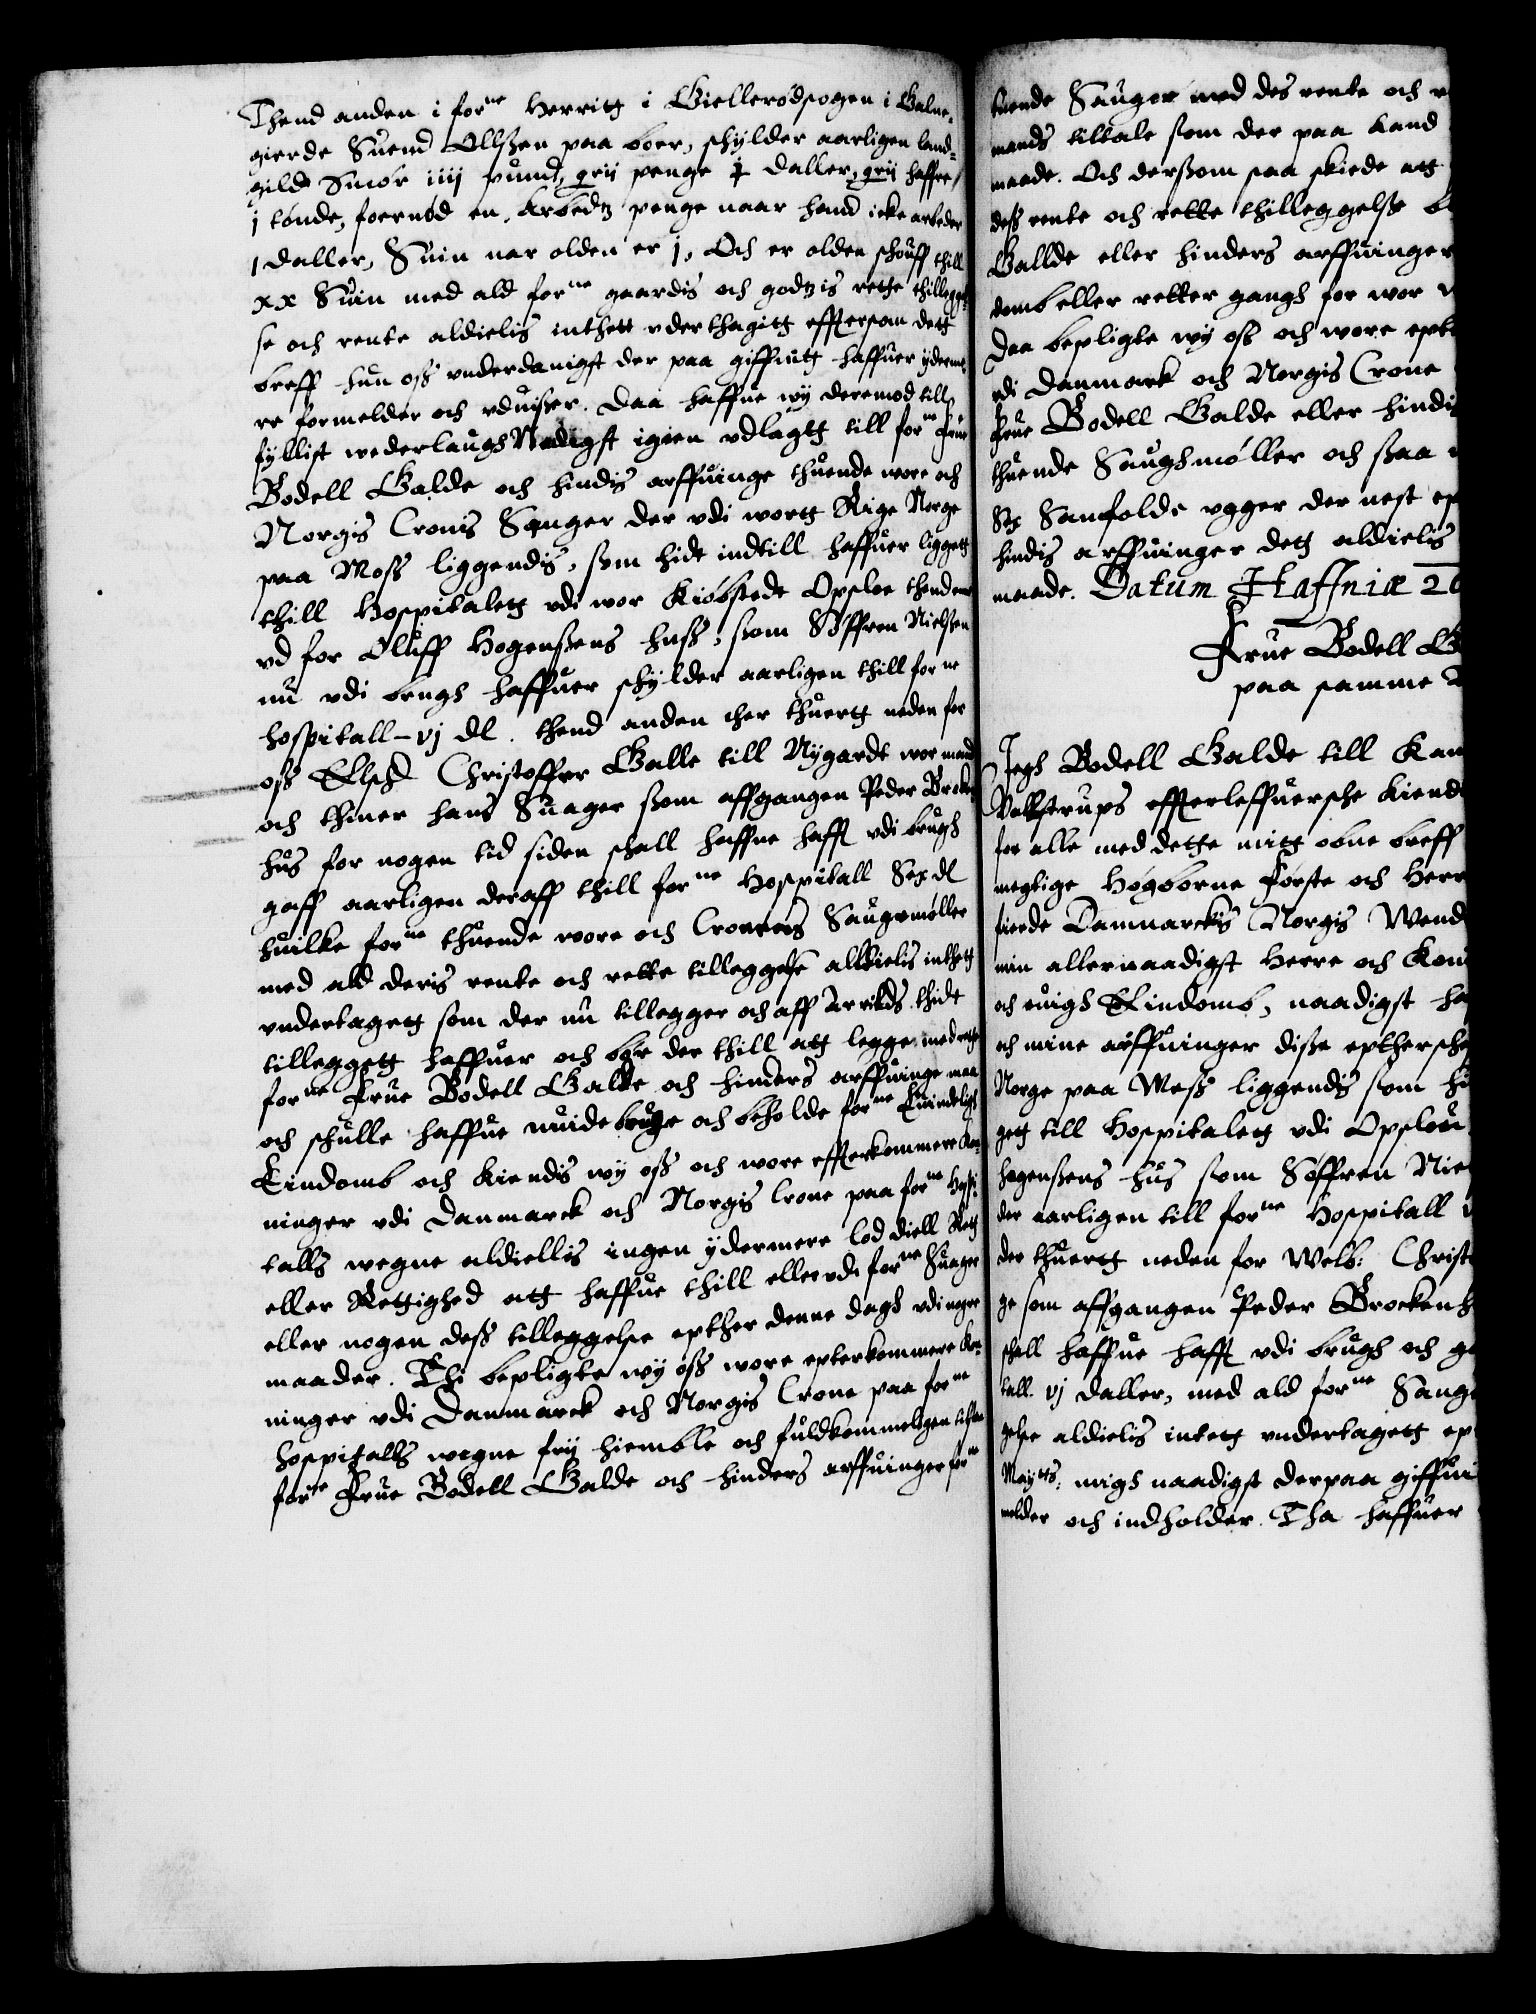 Thend anden i forne Herritz i Giellerødsogen i Galne-
gierde Suend Ollszen paa boer, schylder aarligen land-
gilde Smør iiij pund, grij penge ½ Daller, grij haffre
j tønde, foernød en, Arbedtz penge naar hand icke arbeder
1 Daller, Suin nar olden er j, Och er olden schouff thill
xx Suin med ald forne gaardis och godtzis rette thillegel-
se och rente aldielis inthett vderthagitt efftersom dett
breff hun osz vnderdanigst der paa giffuitt haffuer yderme-
re formelder och vduiszer. Daa haffue wy deremod till
fyllist wederlaugh Nadigst igien vdlagtt till forne frue
Bodell Galde och hindis arffuinge thuende wore och
Norgis Cronis Sauger der vdi wortt Rige Norge
paa Mosz liggendis, som hidt indtill haffuer liggett
thill Hospitalett vdi wor Kiøbstedt Opsloe thend ene
vd for Oluff Hogenszens husz, szom Søffren Nielszen
nu vdi brugh haffuer schylder aarligen thill forne
hospitall - vj dl. thend anden ther thuertt neden for
osz Elsch Christoffer Galle till Nygardt wor mand
och thiner hans Suager szom affgangen Peder Brocken-
hus for nogen tid siden schall haffue hafft vdi brugh
gaff aarligen deraff thill forne Hospitall Sex dl
huilke forne thuende wore och Cronens Saugemøller
med ald deris rente och rette tilleggelse aldielis inthett
vndertagett som der nu tillegger och aff Arrilds thidt
tilleggett haffuer och bør der thill att legge med rette
forne Frue Bodell Galde och hinders arffuinge maa
och schulle haffue nuide bruge och beholde forne Euindeligh
Eindomb och kiendis wy osz och wore effterkommere Kon-
ninger vdi Danmarck och Norgis Crone paa forne Hospi-
talls wegne aldiellis ingen ydermere lod diell Rett
eller Rettighed att haffue thill eller vdi forne Suager
eller nogen desz tilleggelse epther denne dagh vdi nogre
maader. Thi bepligte wy osz wore epterkommere Kon-
ninger vdi Danmarck och Norgis Crone paa forne
hospitalls wegne frij hiemble och fuldkommeligen tilstaa
forne Frue Bodell Galde och hinders arffuinger forne
tuende Sauger med des rente och
mands tiltale szom der paa kand
maade. Och derszom saa skiede att
desz rente och rette thilleggelsze
Gallde eller hinders arffuinger
domb eller retter gangh for wor
Daa bepligte wy osz och wore
vdi Danmark och Norgis Crone
Frue Bodell Galde eller hindis
thuende Saughmøller och szaa
Sex Samfolde vgger der nest
hindis arffuinger dett aldielis
maade. Datum Haffniæ
Frue Bodell
paa samme
Jegh Bodell Galde till
effterleffuersche kiendis
for alle med dette mitt obne breff
megtige Høgborne Første och Herre
fierde Danmarckis Norgis Wend
min allernaadigst Herre och
och euigh Eindomb, naadigst
och mine arffuinger disze
Norge paa Mosz liggendis som
gett till Hospitalett vdi Opsloe
hogenszens hus som Søffren
der aarligen till forne Hospitall
der thuertt neden for Welb: Christ
ge som affgangen Peder Brocken
schall haffue hafft vdi brugh och
tall. vj Daller, med ald forne
gelse aldielis intett vndertagett
Maytts: migh naadigst derpaa
melder och indholder. Tha haffuer